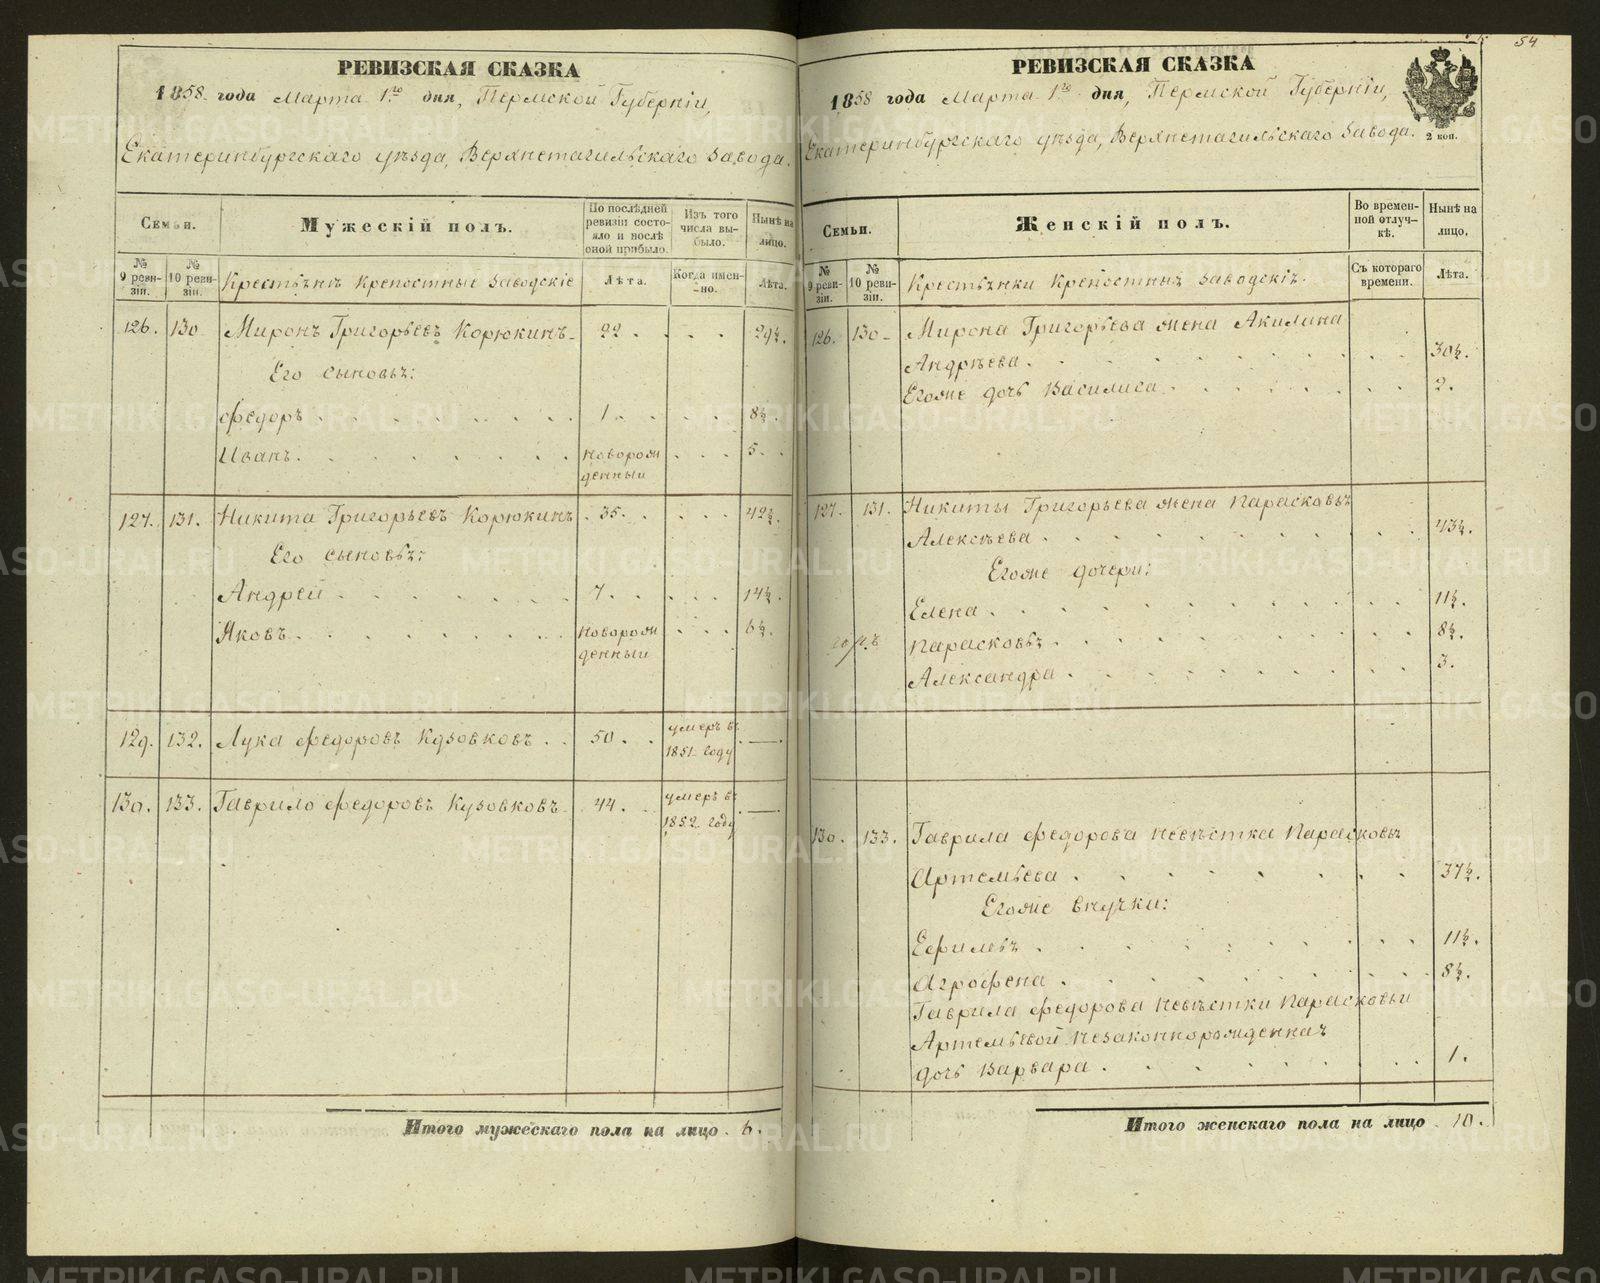 54
РЕВИЗСКАЯ СКАЗКА
1858 года Марта 1го дня, Пермской Губерніи,
Екатеринбургскаго уѣзда, Верхнетагильскаго Завода.
Семьи.
Мужескій полъ.
По послѣдней ревизіи состояло и послѣ оной прибыло.
Изъ того числа выбыло.
Нынѣ на лицо.
№ 9 ревизіи.
№ 10 ревизіи.
Крестьянѣ Крепостные Заводскіе
Лѣта.
Когда именно.
Лѣта.
126. 130 Миронъ Григорьевъ Корюкинъ 22 . . . 29½.
Его сыновья:
Федоръ . . . . . . . 1 . . . . 8½.
Иванъ . . . . . . . новорож . . . 5 . .
денный
127. 131. Никита Григорьевъ Корюкинъ . 35 . . . . 42½.
Его сыновья:
Андрей . . . . . . 7 . . . . . 14½.
Яковъ . . . . . . новорож . . . 6½.
денный
129. 132. Лука Федоровъ Кузовковъ . . 50 . . умеръ въ —
1851 году
130. 133. Гаврило Федоровъ Кузовковъ 44 . . умеръ въ —
1852 году
Итого мужескаго пола на лицо . 6.
РЕВИЗСКАЯ СКАЗКА
1858 года Марта 1го дня, Пермской Губерніи,
Екатеринбургскаго уѣзда, Верхнетагильскаго Завода.
2 коп.
Семьи.
Женскій полъ.
Во временной отлучкѣ.
Нынѣ на лицо,
№ 9 ревизіи.
№ 10 ревизіи.
Крестьянки Крепостныя Заводскія.
Съ котораго времени.
Лѣта.
126. 130 Мирона Григорьева жена Акилина
Андрѣева . . . . . . . . . 30½.
Егоже дочь Василиса . . . . . . . 2.
127. 131. Никиты Григорьева жена Парасковья
Алексѣева . . . . . . . . . 43½.
Егоже дочери:
Елена . . . . . . . . . 11½.
Парасковья . . . . . . . . 8½.
Александра . . . . . . . . 3.
130. 133. Гаврила Федорова невѣстка Парасковья
Артемьева . . . . . . . . 37½.
Егоже внучки:
Ефимья . . . . . . . . 11½.
Агрофена . . . . . . . . 8½.
Гаврила Федорова невѣстки Парасковьи
Артемьевой незаконнорожденная
дочь Варвара . . . . . . . 1.
Итого женскаго пола на лицо . 10.
METRIKI.GASO-URAL.RU